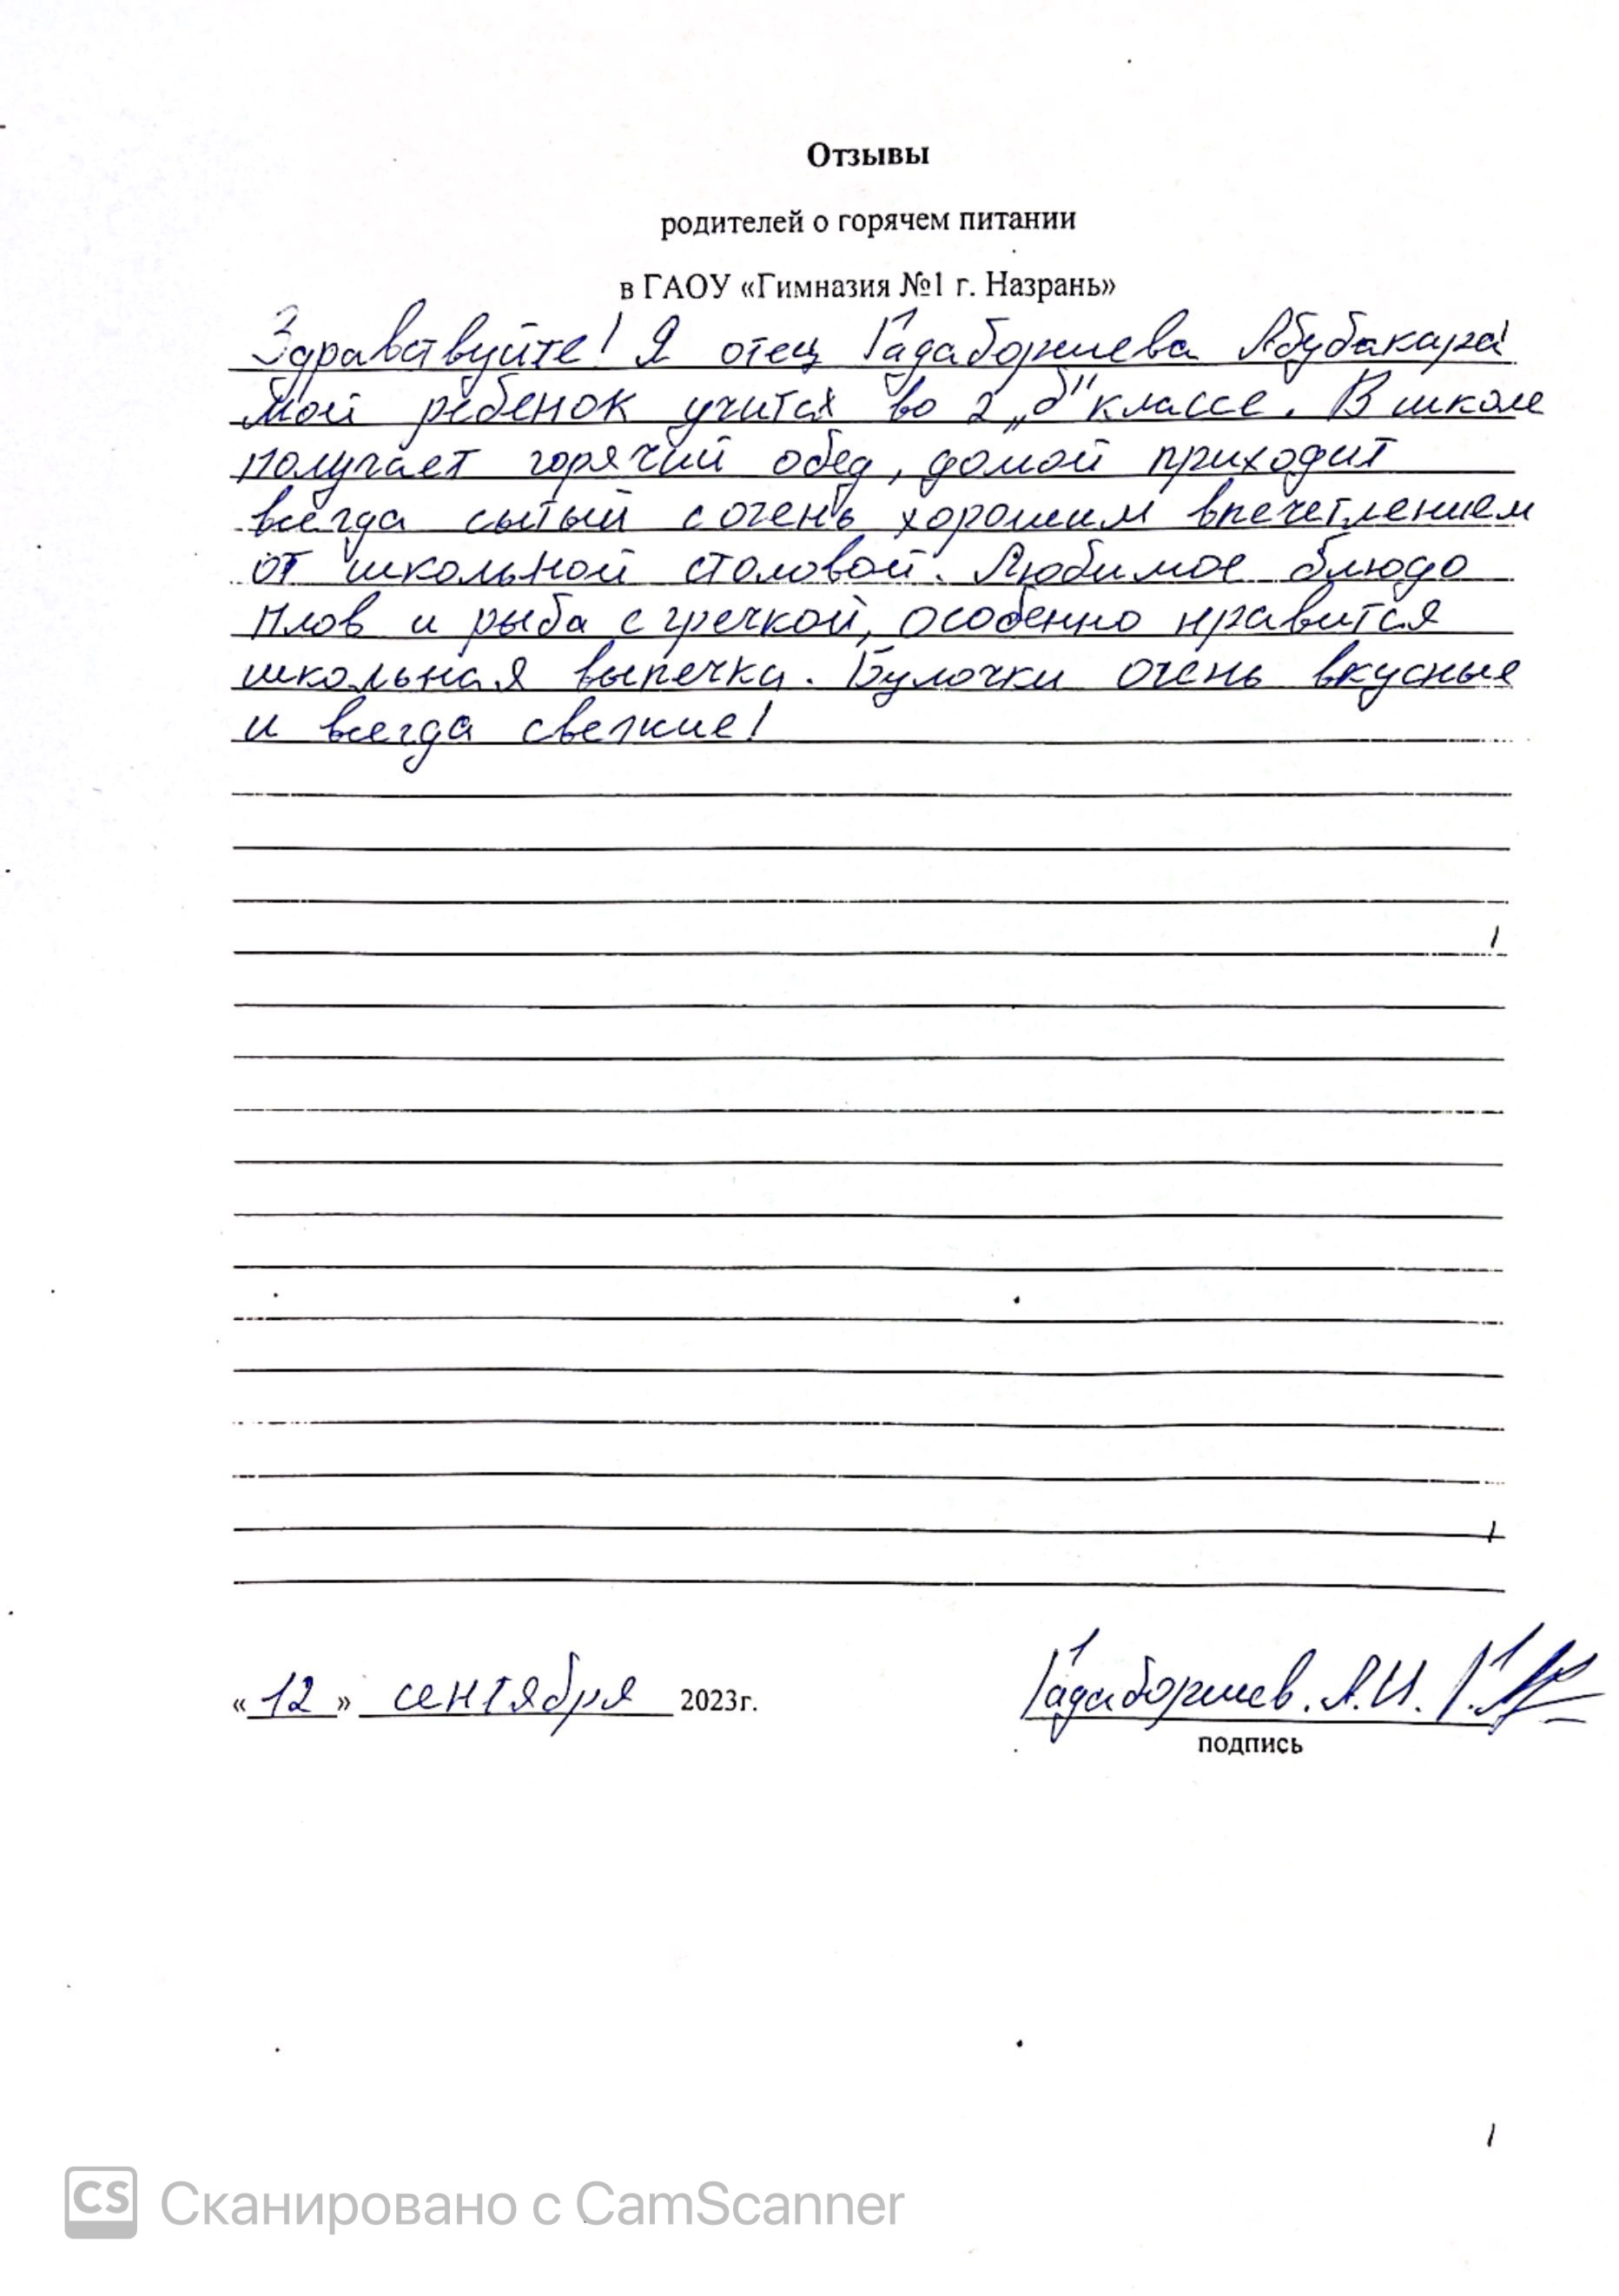 Отзывы
родителей о горячем питании
в ГАОУ «Гимназия №1 г. Назрань»
Здравствуйте! Я отец Гадаборшева Абубакара
мой ребенок учится во 2 „б" классе. В школе
получает горячий обед, домой приходит
всегда сытый с очень хорошим впечетлением
от школьной столовой. Любимое блюдо
плов и рыба с гречкой, особенно нравится
школьная выпечка. Булочки очень вкусные
и всегда свежие!
«12» сентября 2023г.
Гадаборшев. А.И.
подпись
CS Сканировано с CamScanner